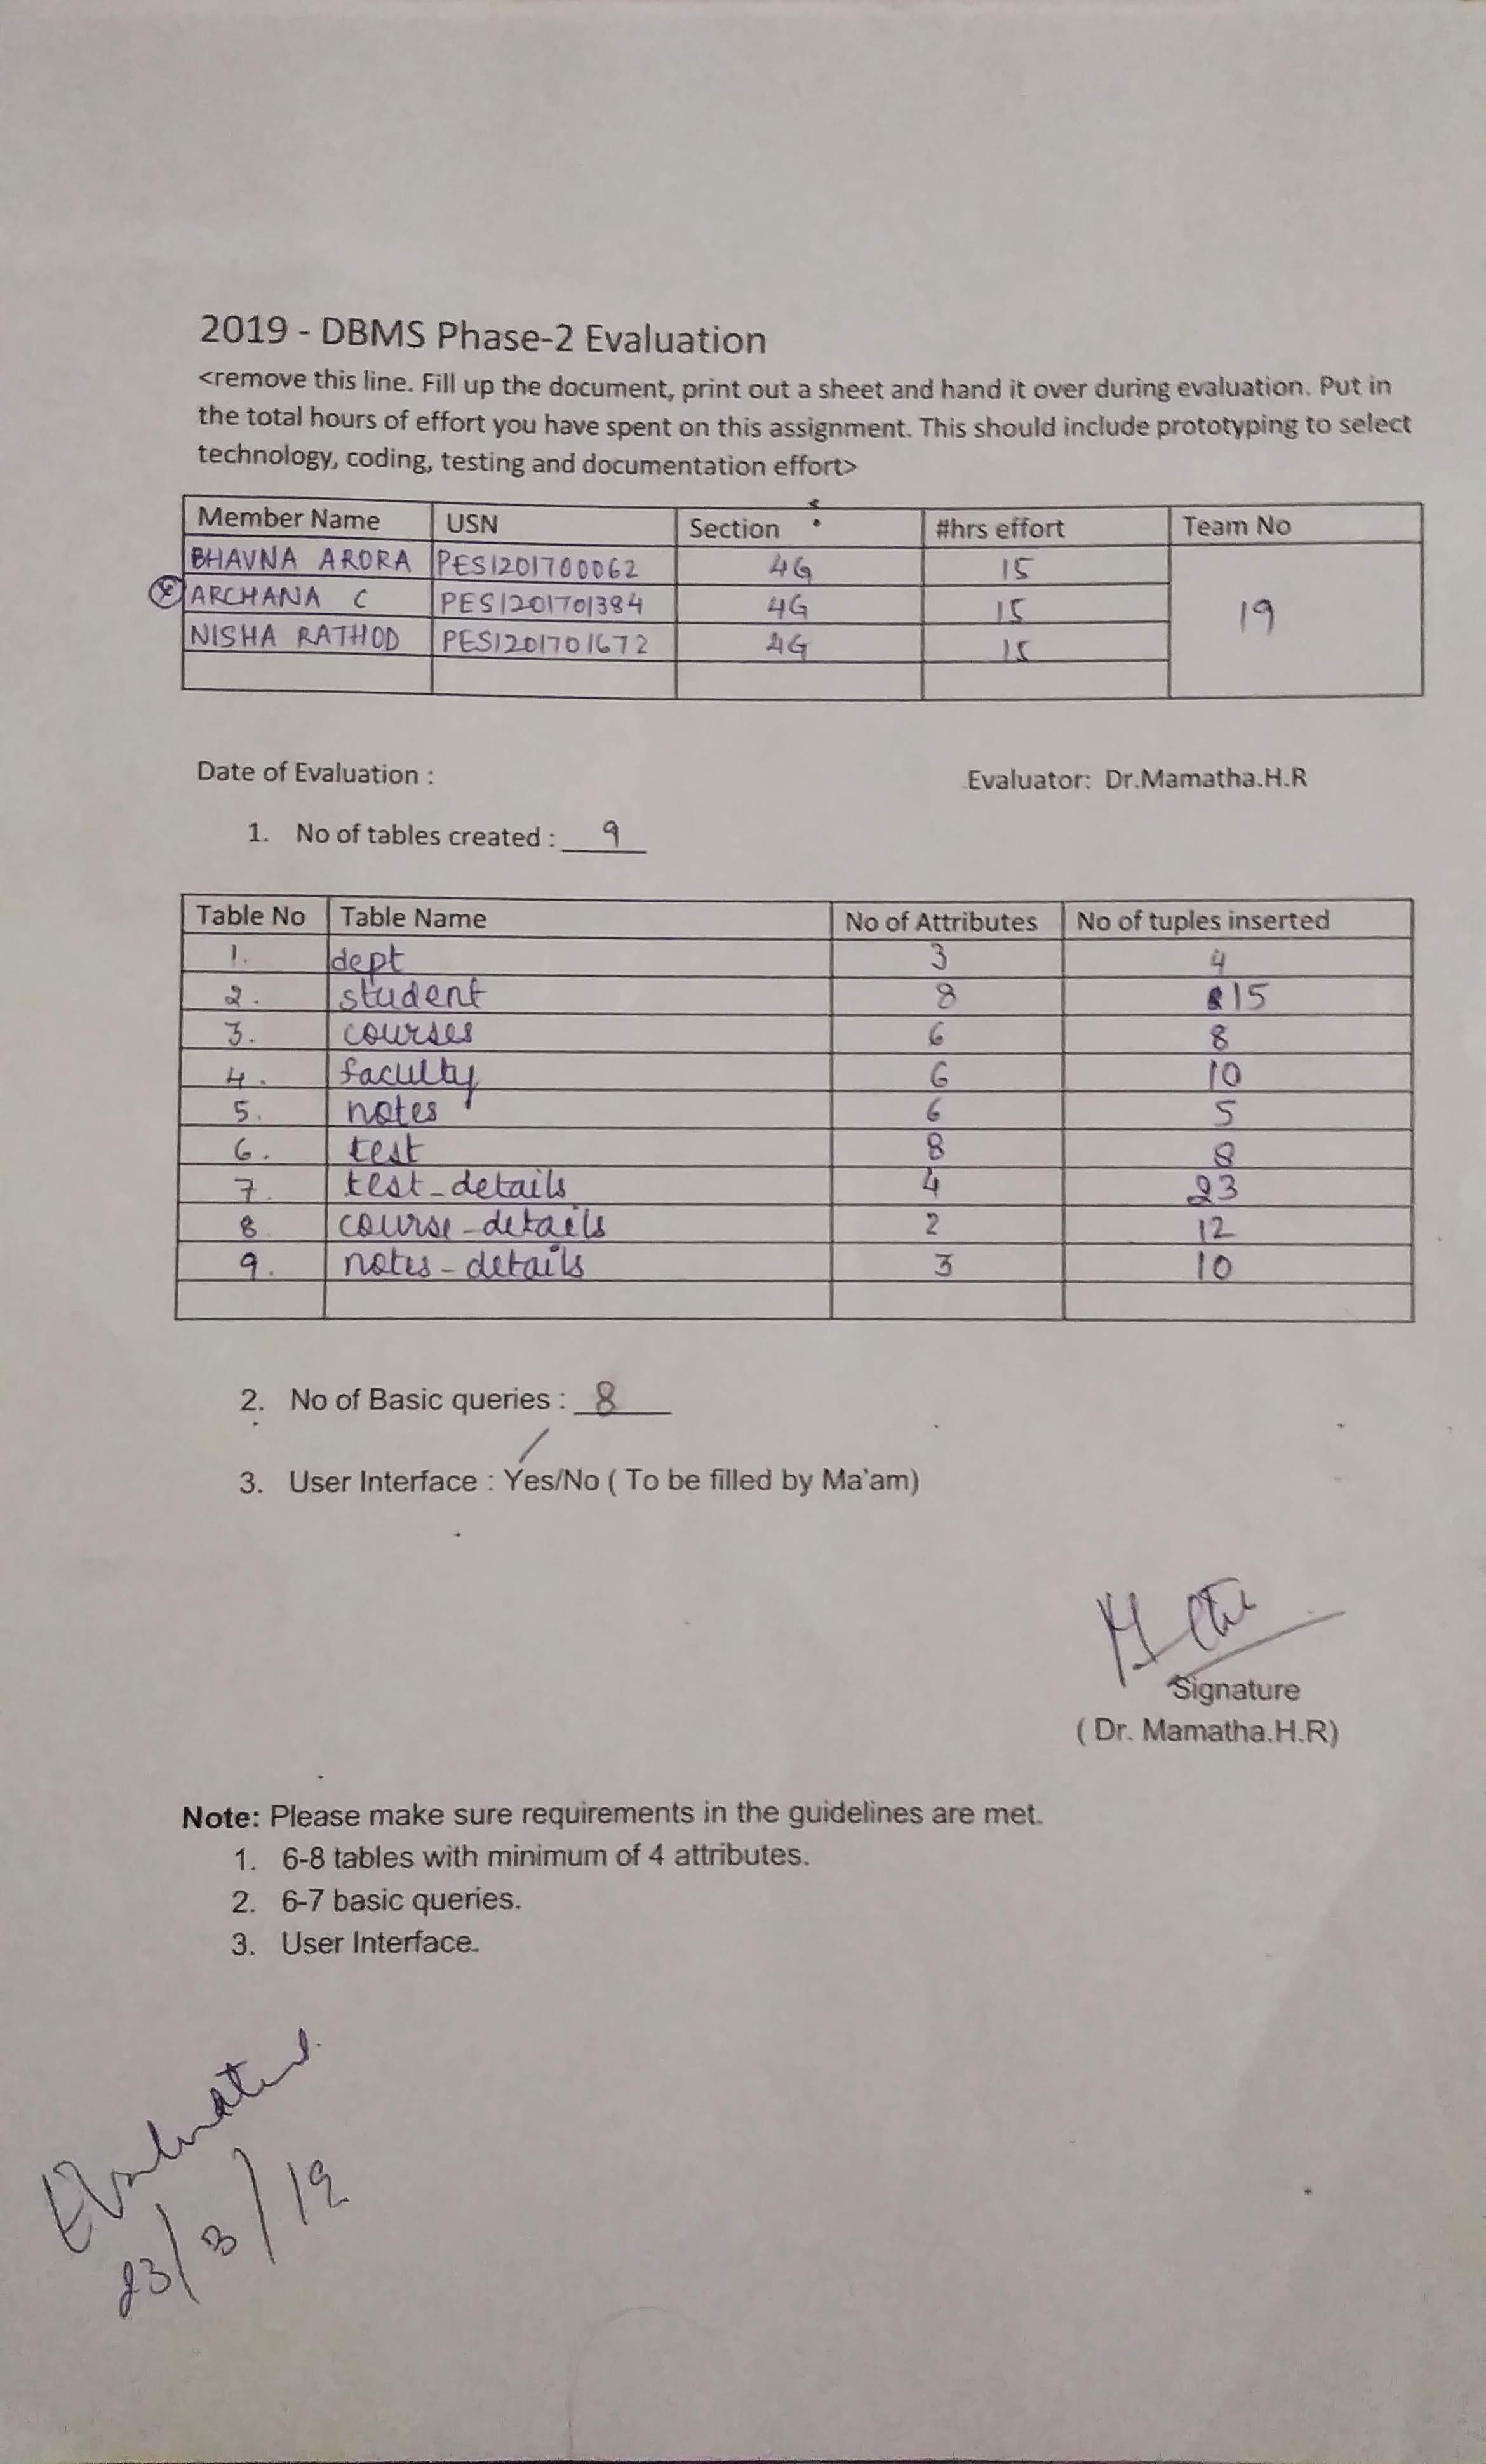 2019 - DBMS Phase-2 Evaluation
<remove this line. Fill up the document, print out a sheet and hand it over during evaluation. Put in
the total hours of effort you have spent on this assignment. This should include prototyping to select
technology, coding, testing and documentation effort>
Member Name USN Section #hrs effort Team No
BHAVNA ARORA PES1201700062 4G 15
ARCHANA C PES1201701384 4G 15 19
NISHA RATHOD PES1201701672 4G 15
Date of Evaluation : Evaluator: Dr.Mamatha.H.R
1. No of tables created : 9
Table No Table Name No of Attributes No of tuples inserted
1. dept 3 4
2. student 8 15
3. courses 6 8
4. faculty 6 10
5. notes 6 5
6. test 8 8
7. test_details 4 23
8. course_details 2 12
9. notes_details 3 10
2. No of Basic queries : 8
3. User Interface : Yes/No ( To be filled by Ma'am)
Signature
( Dr. Mamatha.H.R)
Note: Please make sure requirements in the guidelines are met.
1. 6-8 tables with minimum of 4 attributes.
2. 6-7 basic queries.
3. User Interface.
Evaluated
23/3/19